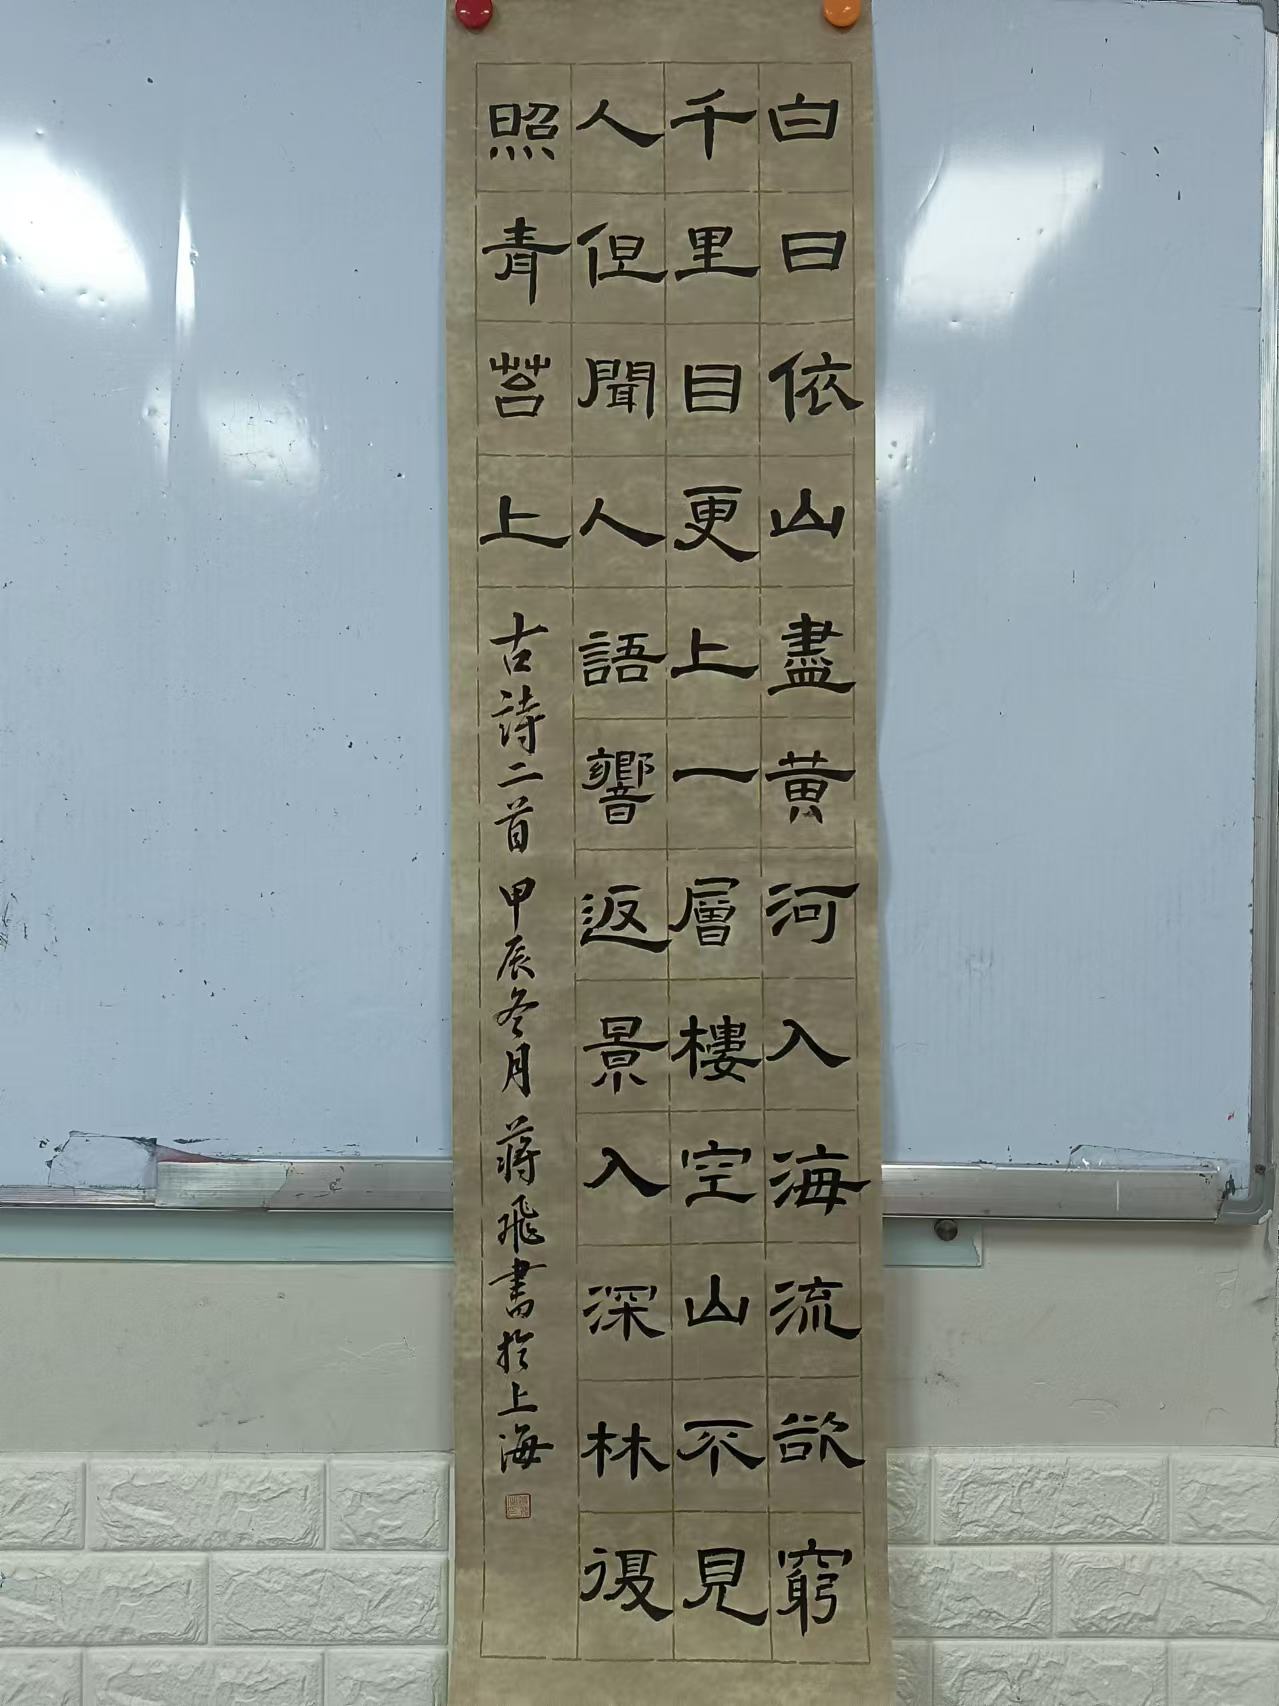 白日依山盡黄河入海流欲窮
千里目更上一層樓空山不見
人但聞人語響返景入深林復
照青苔上古詩二首甲辰冬月蔣飛書於上海